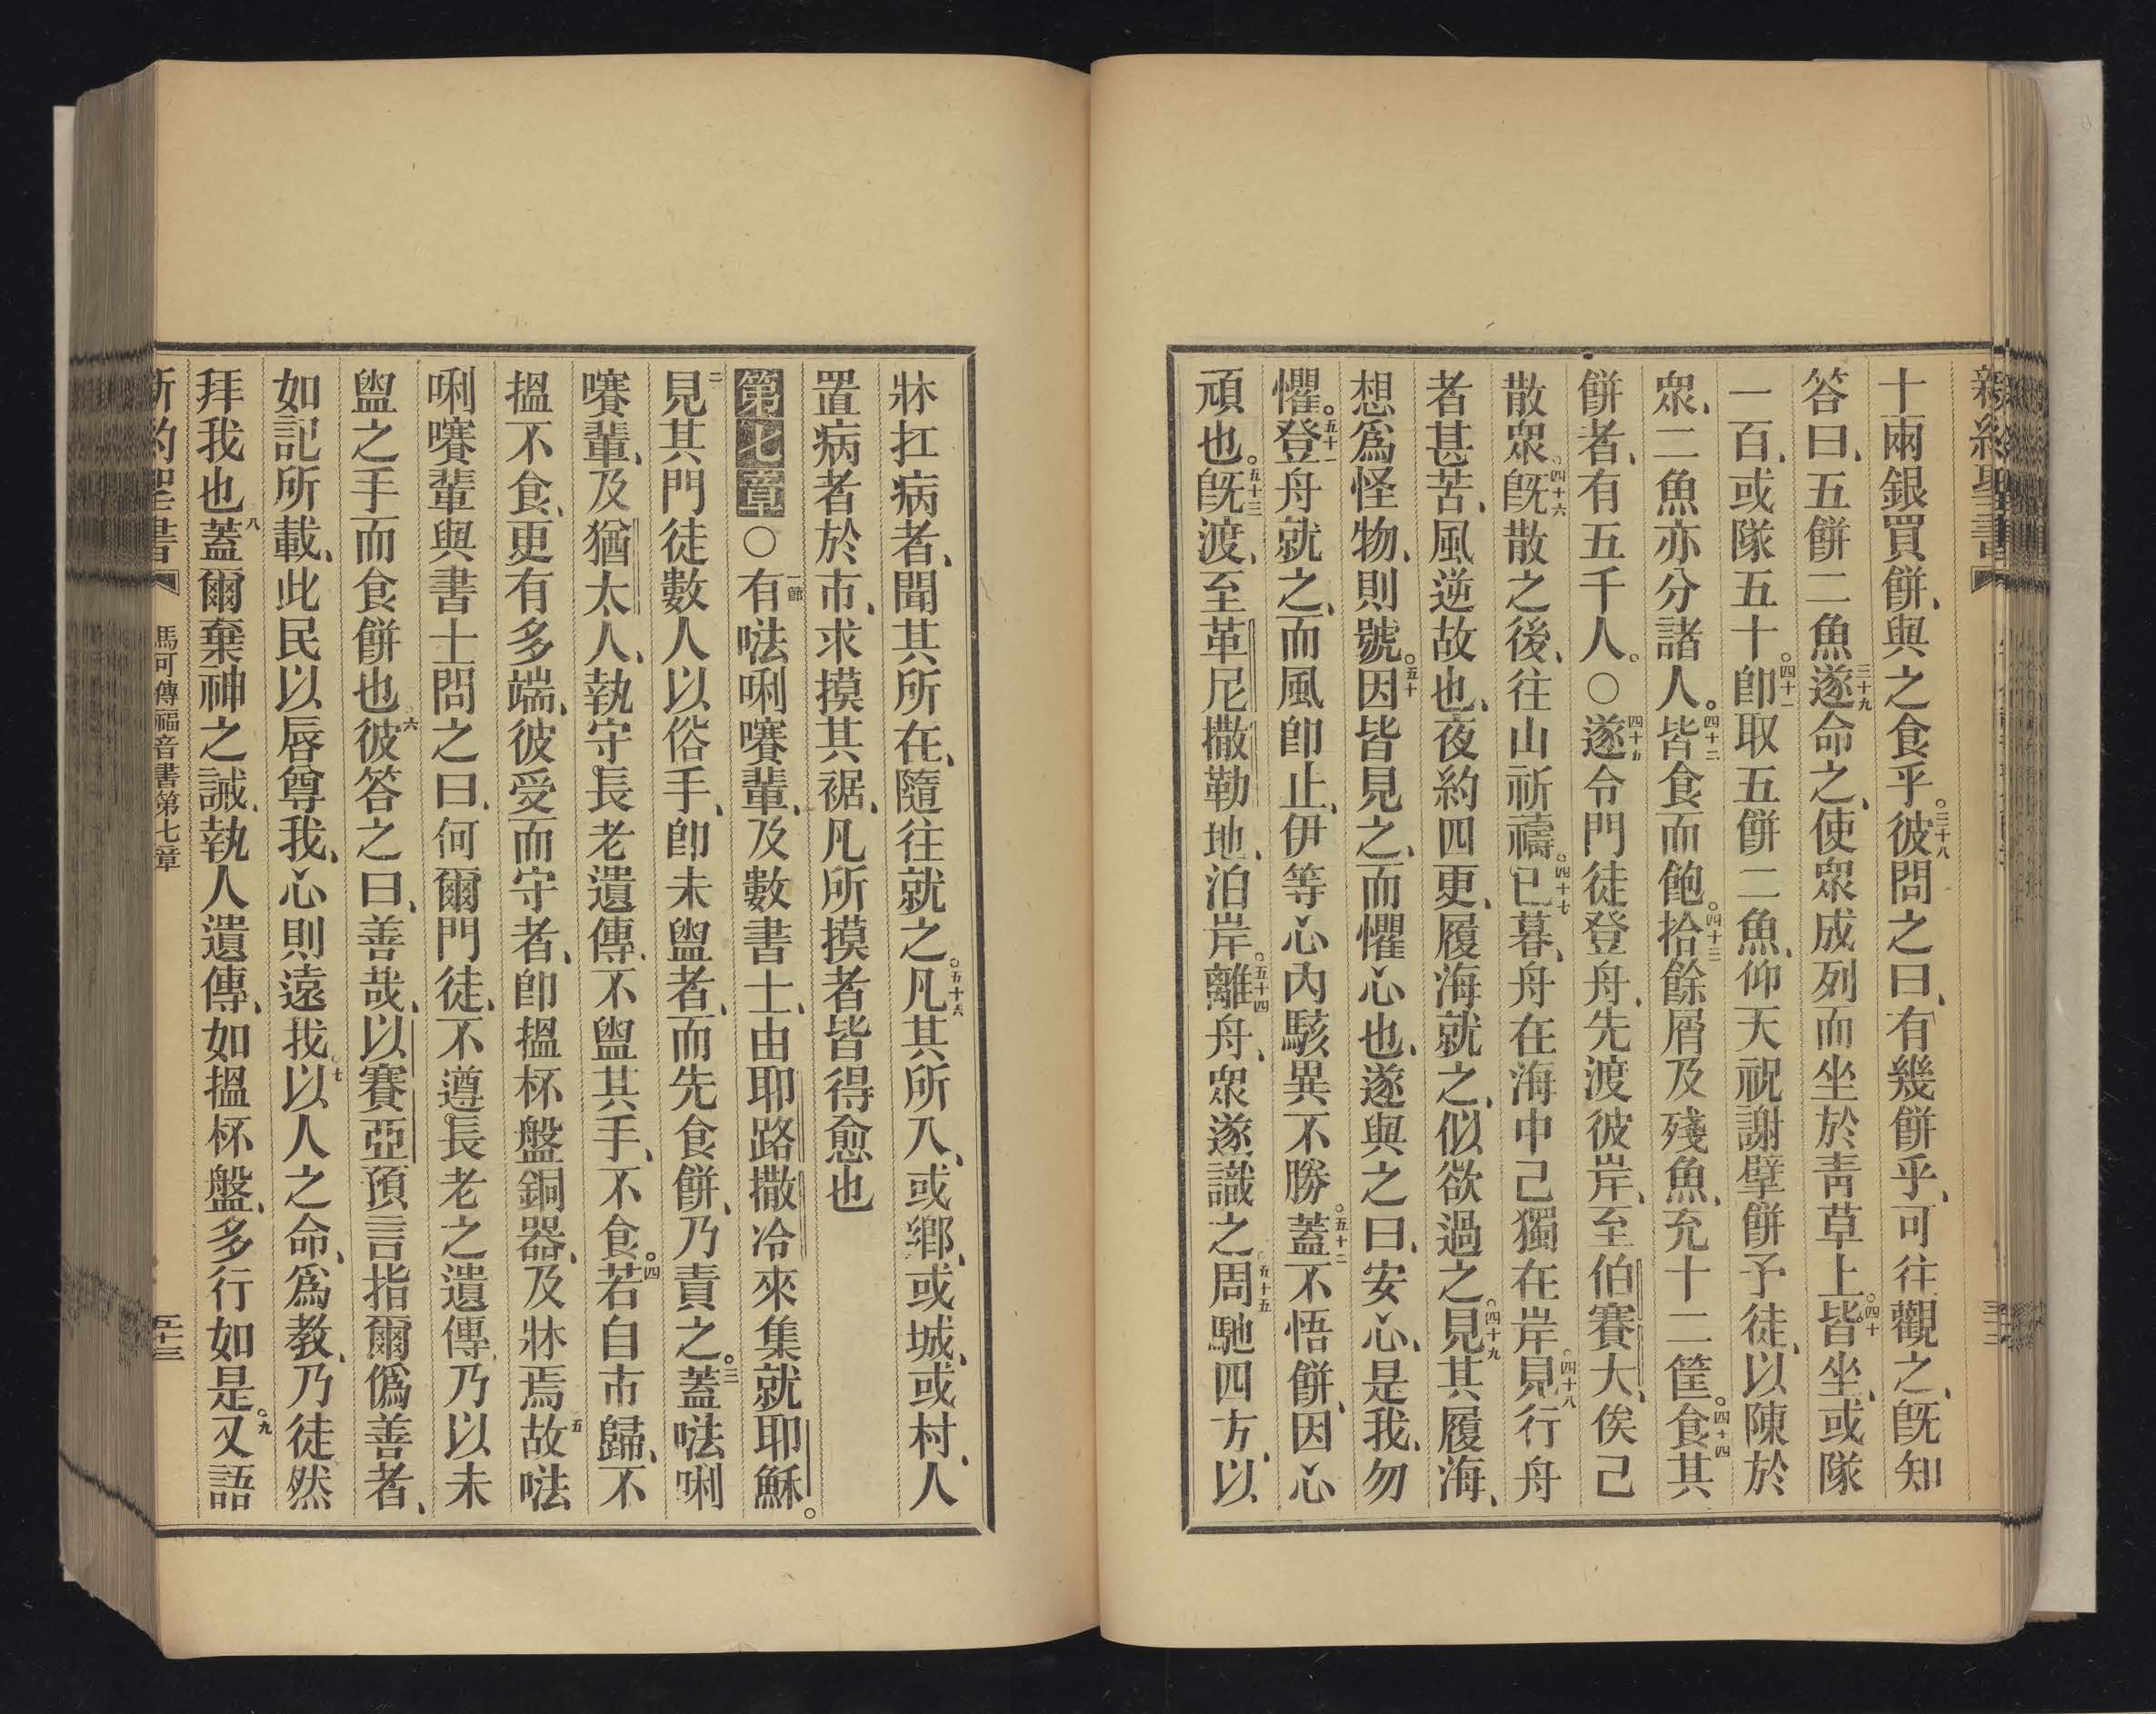 新約聖書
十兩銀買餅、與之食乎。三十八彼問之曰、有幾餅乎、可往觀之、旣知
答曰、五餅二魚三十九遂命之、使眾成列而坐於靑草上。四十皆坐、或隊
一百、或隊五十。四十一卽取五餅二魚、仰天祝謝擘餅予徒、以陳於
眾、二魚亦分諸人。四十二皆食而飽。四十三拾餘屑及殘魚、充十二筐。四十四食其
餅者、有五千人。○四十五遂令門徒登舟、先渡彼岸、至伯賽大、俟己
散眾。四十六旣散之後、往山祈禱。四十七已暮、舟在海中己獨在岸。四十八見行舟
者甚苦、風逆故也、夜約四更、履海就之、似欲過之。四十九見其履海、
想爲怪物、則號。五十因皆見之、而懼心也、遂與之曰、安心、是我、勿
懼。五十一登舟就之、而風卽止、伊等心內駭異不勝。五十二蓋不悟餅、因心
頑也。五十三旣渡、至革尼撒勒地、泊岸。五十四離舟、眾遂識之。五十五周馳四方、以
牀扛病者、聞其所在、隨往就之。五十六凡其所入、或鄕、或城、或村、人
置病者於市、求摸其裾、凡所摸者皆得愈也
第七章○一節有𠵽唎嚽輩、及數書士、由耶路撒冷來集就耶穌。
二見其門徒數人以俗手、卽未盥者、而先食餅、乃責之。三蓋𠵽唎
嚽輩、及猶太人、執守長老遺傳、不盥其手、不食。四若自市歸、不
搵不食、更有多端、彼受而守者、卽搵杯盤銅器、及牀焉五故𠵽
唎嚽輩與書士問之曰、何爾門徒、不遵長老之遺傳、乃以未
盥之手而食餅也。六彼答之曰、善哉、以賽亞預言指爾僞善者、
如記所載、此民以唇尊我、心則遠我。七以人之命、爲教、乃徒然
拜我也八蓋爾棄神之誡、執人遺傳、如搵杯盤、多行如是。九又語
新約聖書 馬可傳福音書第七章 五十三